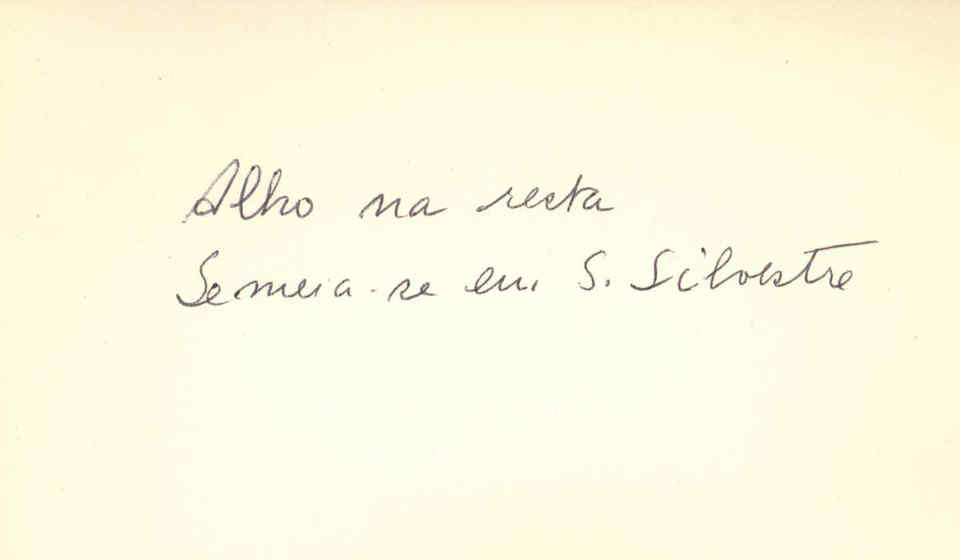 Alho na resta
Semeia-se em S. Silvestre